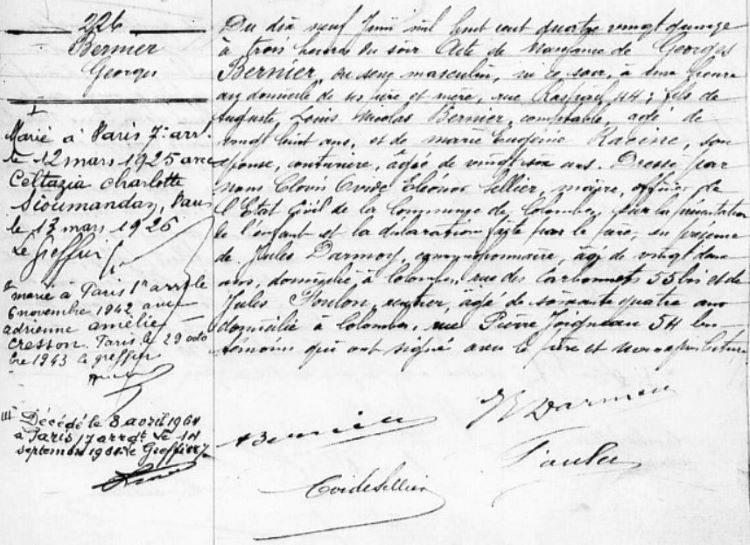 226
Bernier
Georges
I
Marié à Paris 7e arrt
le 12 mars 1925 avec
Celtazia Charlotte
Sioumandas, Paris
le 13 mars 1925
Le Greffier
II marié à Paris 1er arr le
6 novembre 1942 avec
adrienne amélie
Cresson. Paris le 29 octo
bre 1943 le greffier
III Décédé le 8 avril 1964
à Paris 17 arrdt Le 14
septembre le Greffier
Du dix neuf Juin mil huit cent quatre vingt
à trois heures du soir Acte de Naissance de Georges
Bernier, du sexe masculin, né ce, à une heure
au domicile de ses père et mère, rue Raspail 44; fils de
Auguste Louis Nicolas Bernier, comptable, agé de
vingt huit ans, et de Marie Eugénie Racine, son
épouse, couturière, agée de vingt six ans. Dressé par
nous Clovis Ovide Eléonor Sellier, maire, officier de
l'Etat Civil de la Commune de Colombes, sur la présentation
de l'enfant et la déclaration faite par le père, en présence
de Jules Darmoy, agé de vingt
ans, domicilié à Colombes, rue des Carbonnets 55 bis et de
Jules Poulon, agé de soixante quatre ans
domicilié à Colombes, rue Pierre Joigneau 54 les
témoins qui ont signé avec le père et nous après lecture
Bernier